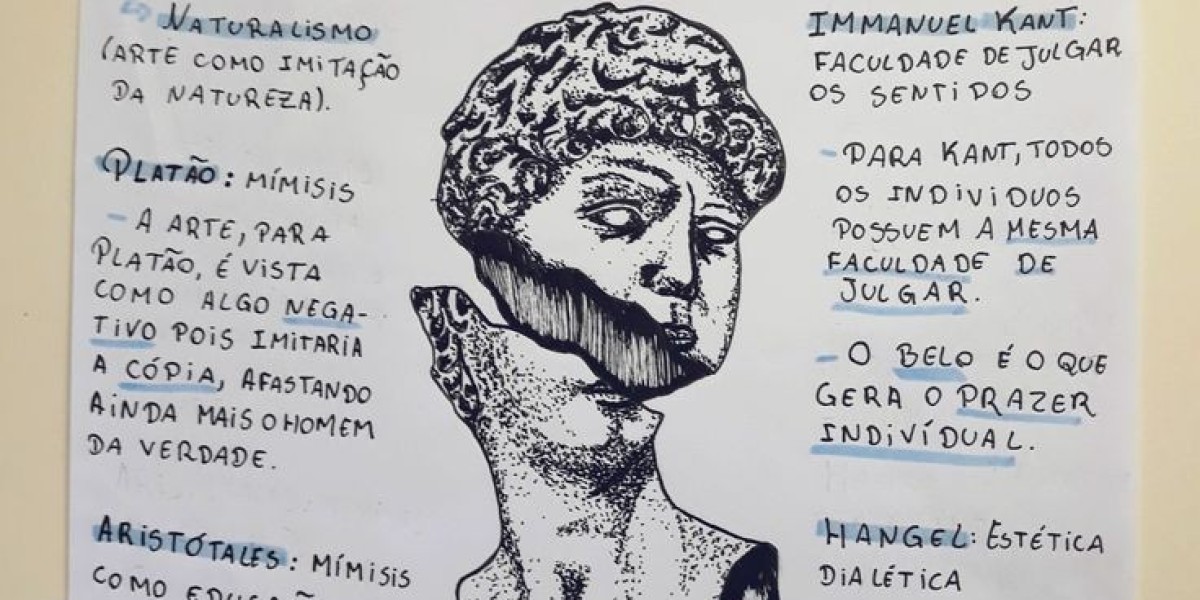 → NATURALISMO
(ARTE COMO IMITAÇÃO
DA NATUREZA).
PLATÃO: MÍMISIS
- A ARTE, PARA
PLATÃO, É VISTA
COMO ALGO NEGA-
TIVO POIS IMITARIA
A CÓPIA, AFASTANDO
AINDA MAIS O HOMEM
DA VERDADE.
ARISTÓTALES: MÍMISIS
COMO
IMMANUEL KANT:
FACULDADE DE JULGAR
OS SENTIDOS
- PARA KANT, TODOS
OS INDIVIDUOS
POSSUEM A MESMA
FACULDADE DE
JULGAR.
- O BELO É O QUE
GERA O PRAZER
INDIVÍDUAL.
HANGEL: ESTÉTICA
DIALÉTICA